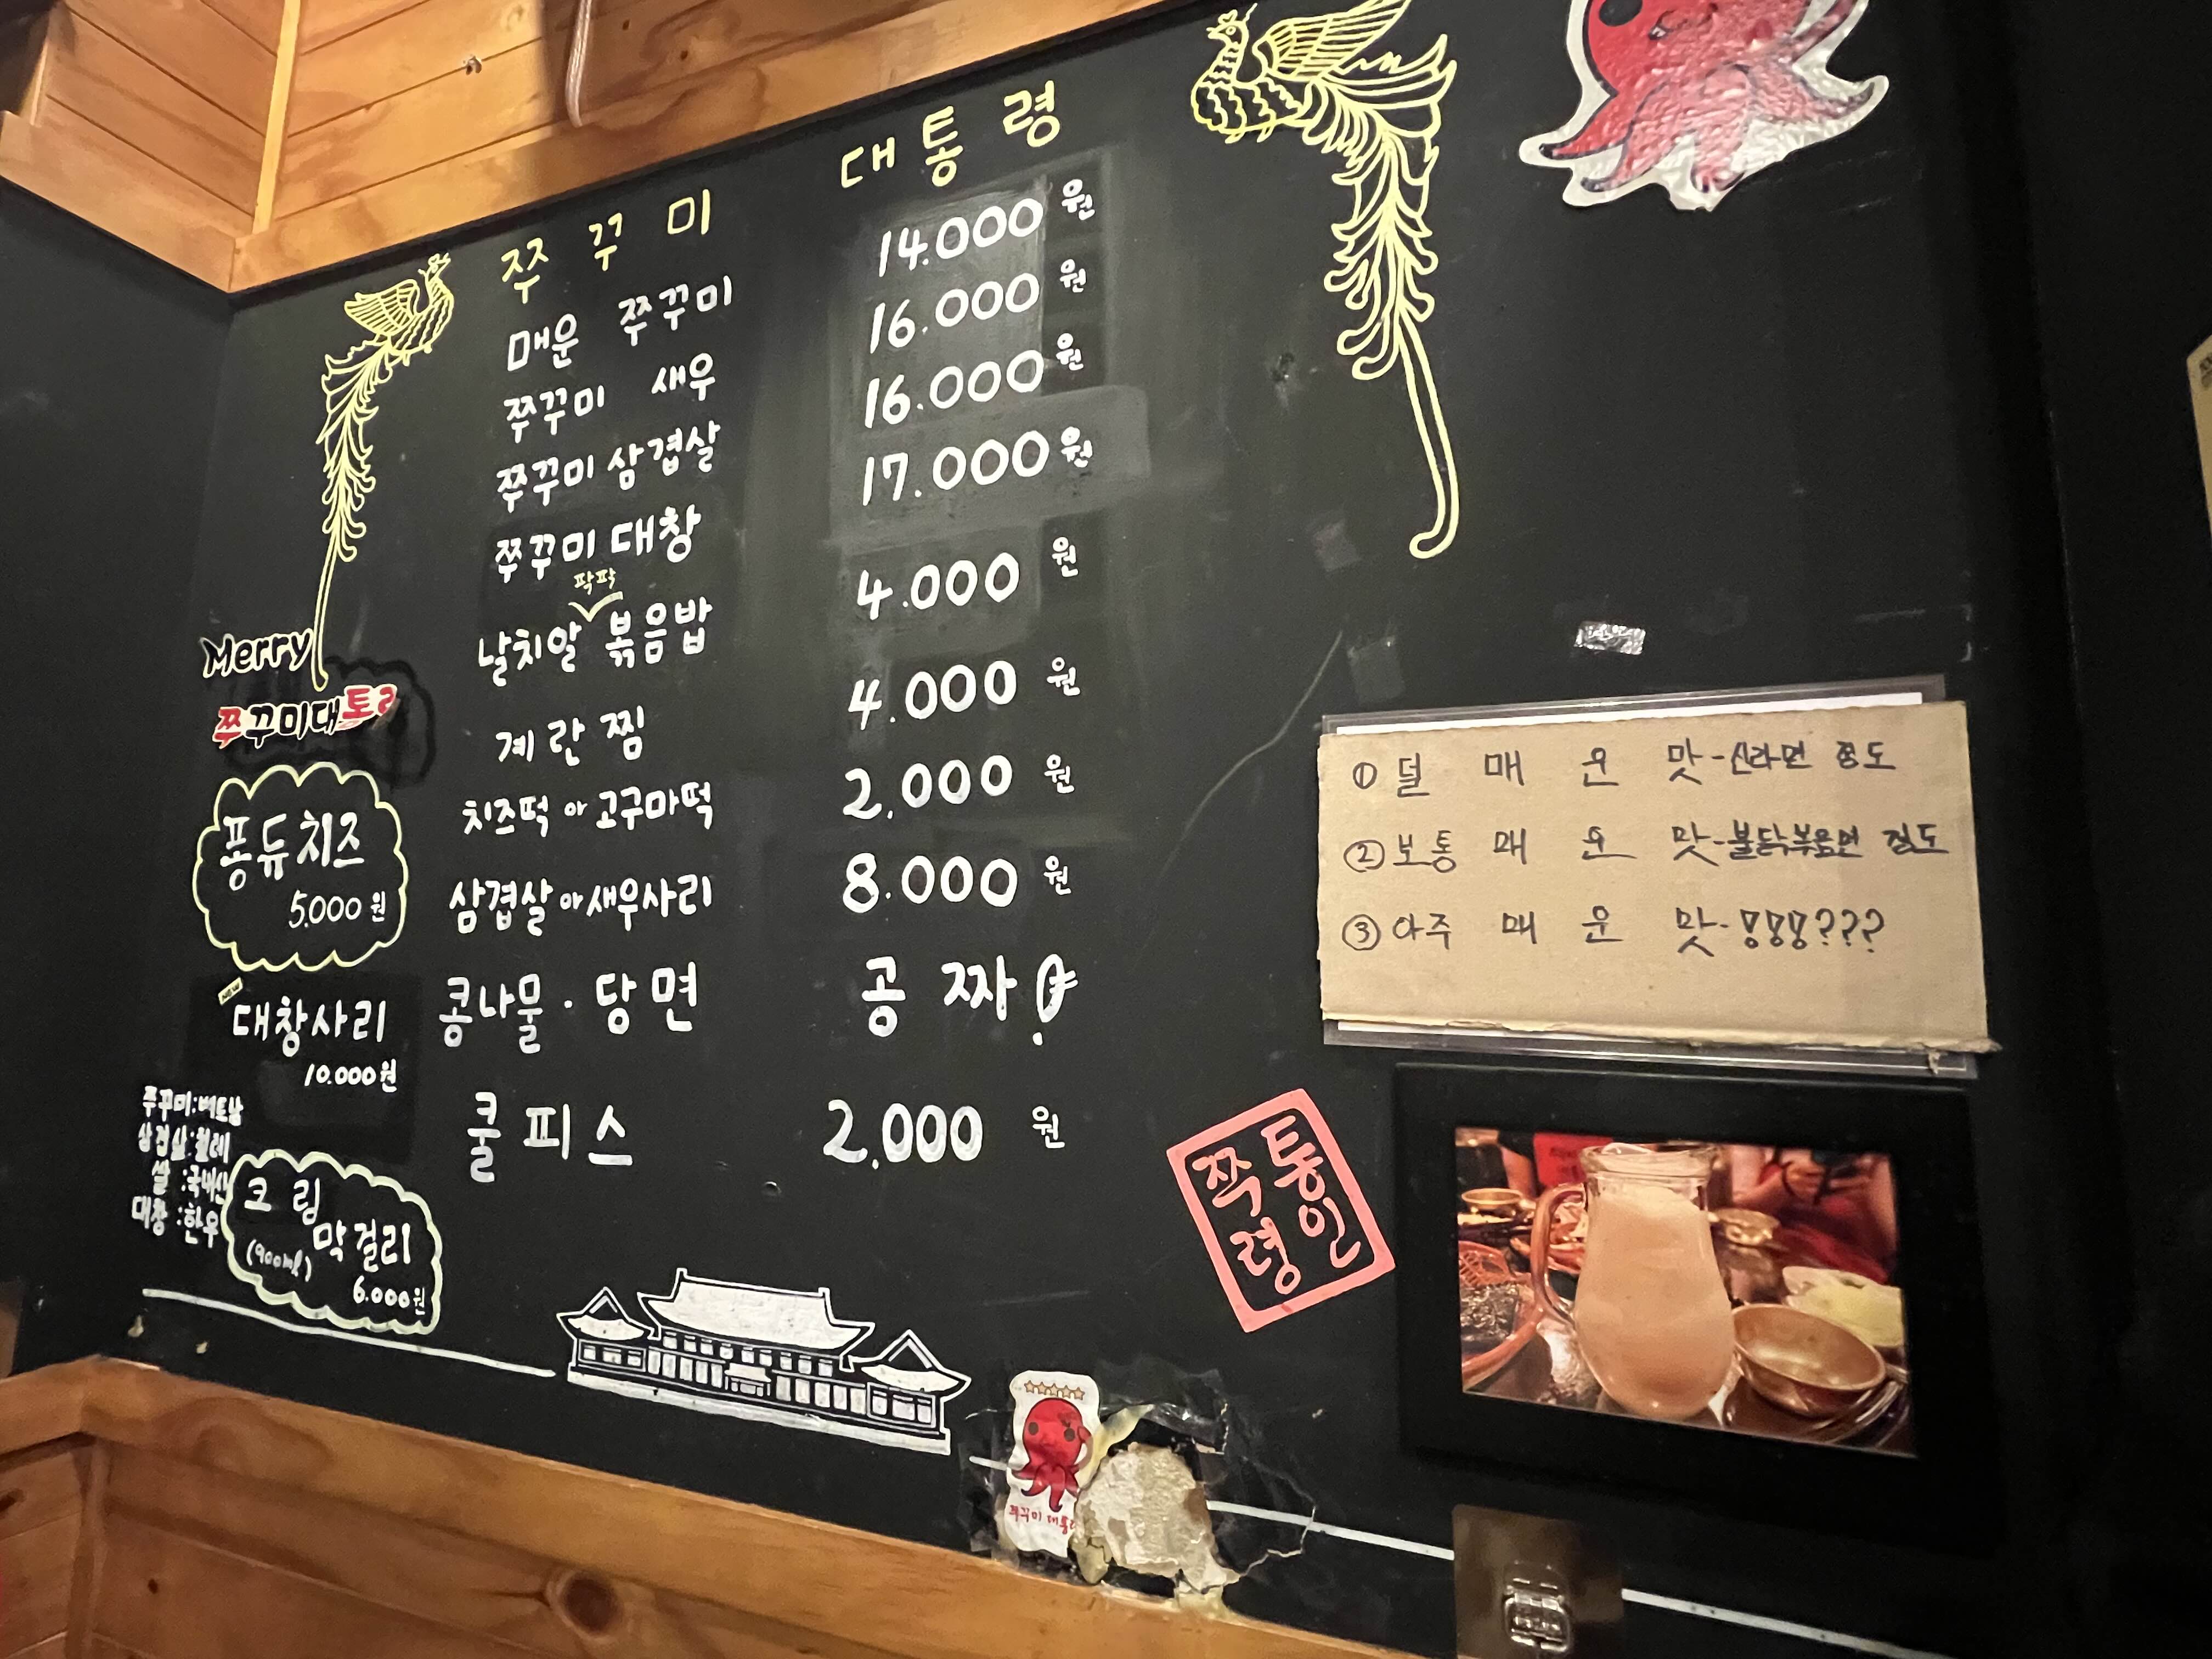 쭈 꾸 미 대 통 령
매운 쭈꾸미 14.000 원
쭈꾸미 새우 16.000 원
쭈꾸미 삼겹살 16.000 원
쭈꾸미 대창 17.000 원
팍팍
날치알 볶음밥 4.000 원
계란찜 4.000 원
치즈떡 or 고구마떡 2,000 원
삼겹살 or 새우사리 8.000 원
콩나물 · 당면 공 짜!
쿨피스 2,000 원
Merry
쭈꾸미대
퐁듀치즈
5,000 원
NEW
대창사리
10.000원
쭈꾸미:베트남
삼겹살:칠레
쌀:국내산
대창:한우
크림
막걸리
(900ml)
6.000원
① 덜 매 운 맛-신라면 정도
② 보통 매 운 맛-불닭볶음면 정도
③ 아주 매 운 맛-!!!???
쭈꾸미